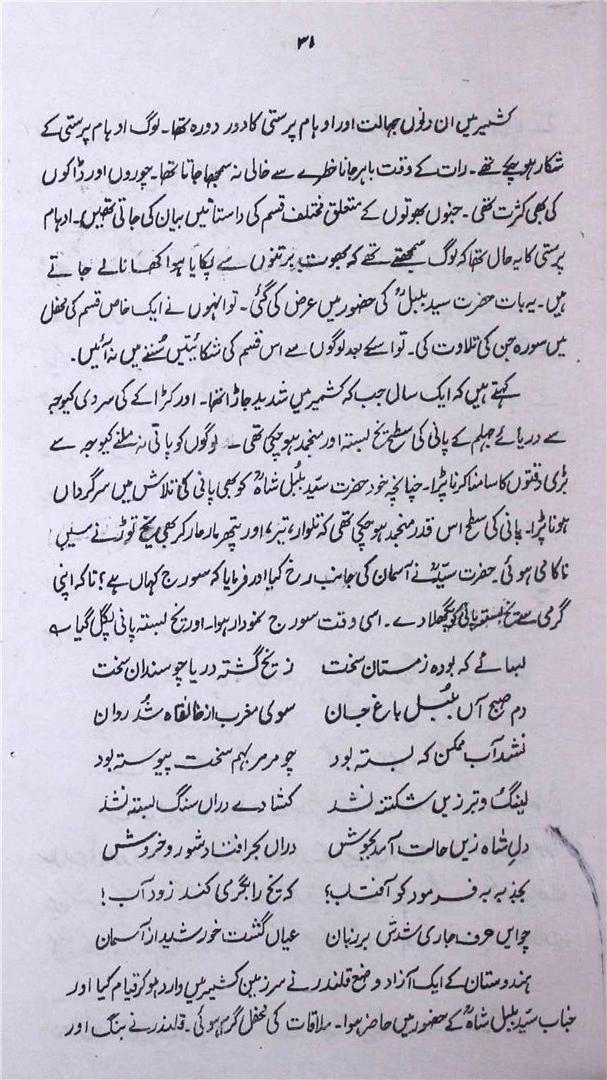 ۳۱
کشمیر میں ان دنوں جہالت اور اوہام پرستی کا دور دورہ تھا۔ لوگ اوہام پرستی کے
شکار ہو چکے تھے۔ رات کے وقت باہر جانا خطرے سے خالی نہ سمجھا جاتا تھا۔ چوروں اور ڈاکوں
کی بھی کثرت تھی۔ جنوں بھوتوں کے متعلق مختلف قسم کی داستانیں بیان کی جاتی تھیں۔ اوہام
پرستی کا یہ حال تھا کہ لوگ سمجھتے تھے کہ بھوت برتنوں سے پکایا ہوا کھانا لے جاتے
ہیں۔ یہ بات حضرت سید بلبلؒ کی حضور میں عرض کی گئی۔ تو انہوں نے ایک خاص قسم کی محفل
میں سورہ جن کی تلاوت کی۔ تو اسکے بعد لوگوں سے اس قسم کی شکائیتیں سُننے میں نہ آئیں۔
کہتے ہیں کہ ایک سال جب کہ کشمیر میں شدید جاڑا تھا۔ اور کڑاکے کی سردی کیوجہ
سے دریائے جہلم کے پانی کی سطح یخ بستہ اور منجمد ہو چکی تھی۔ لوگوں کو پانی نہ ملنے کیوجہ سے
بڑی دقتوں کا سامنا کرنا پڑا۔ چنانچہ خود حضرت سیّد بُلبُل شاہؒ کو بھی پانی کی تلاش میں سرگرداں
ہونا پڑا۔ پانی کی سطح اس قدر منجمد ہو چکی تھی کہ تلوار، تیر، اور پتھر مار مار کر بھی یخ توڑنے میں
ناکامی ہوئی۔ حضرت سیّدؒ نے آسمان کی جانب رخ کیا اور فرمایا کہ سورج کہاں ہے؟ تاکہ اپنی
گرمی سے یخ بستہ پانی کو پگھلا دے۔ اسی وقت سورج نمودار ہوا۔ اور یخ بستہ پانی پگل گیا ؎
بسائے کہ بودہ زمستان سخت زیخ گشتہ دریا چو سندان سخت
دم صبح آں بُلبُل باغ جان سوی مغرب از خانقاہ شُد روان
نشد آب ممکن کہ بستہ بود چو مرمر بہم سخت پیوستہ بود
لینگ و تبرزیں شکستہ نشد کشادے دراں سنگ بستہ نشد
دلِ شاہ زیں حالت آمد بجوش دراں بحر افتاد شور و خروش
بجذبہ بفرمود کو آفتاب؟ کہ یخ را بگرمی کند زود آب!
چو ایں حرف جاری شدش بر زبان عیاں گشت خورشید از آسمان
ہندوستان کے ایک آزاد وضع قلندر نے سرزمین کشمیر میں وارد ہو کر قیام کیا اور
جناب سیّد بلبل شاہؒ کے حضور میں حاضر ہوا۔ ملاقات کی محفل گرم ہوئی۔ قلندر نے بنگ اور